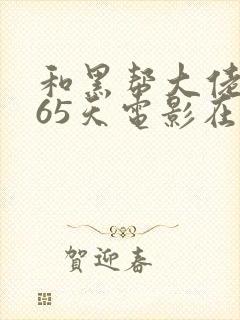 和黑帮大佬
65天电影在
賀迎春